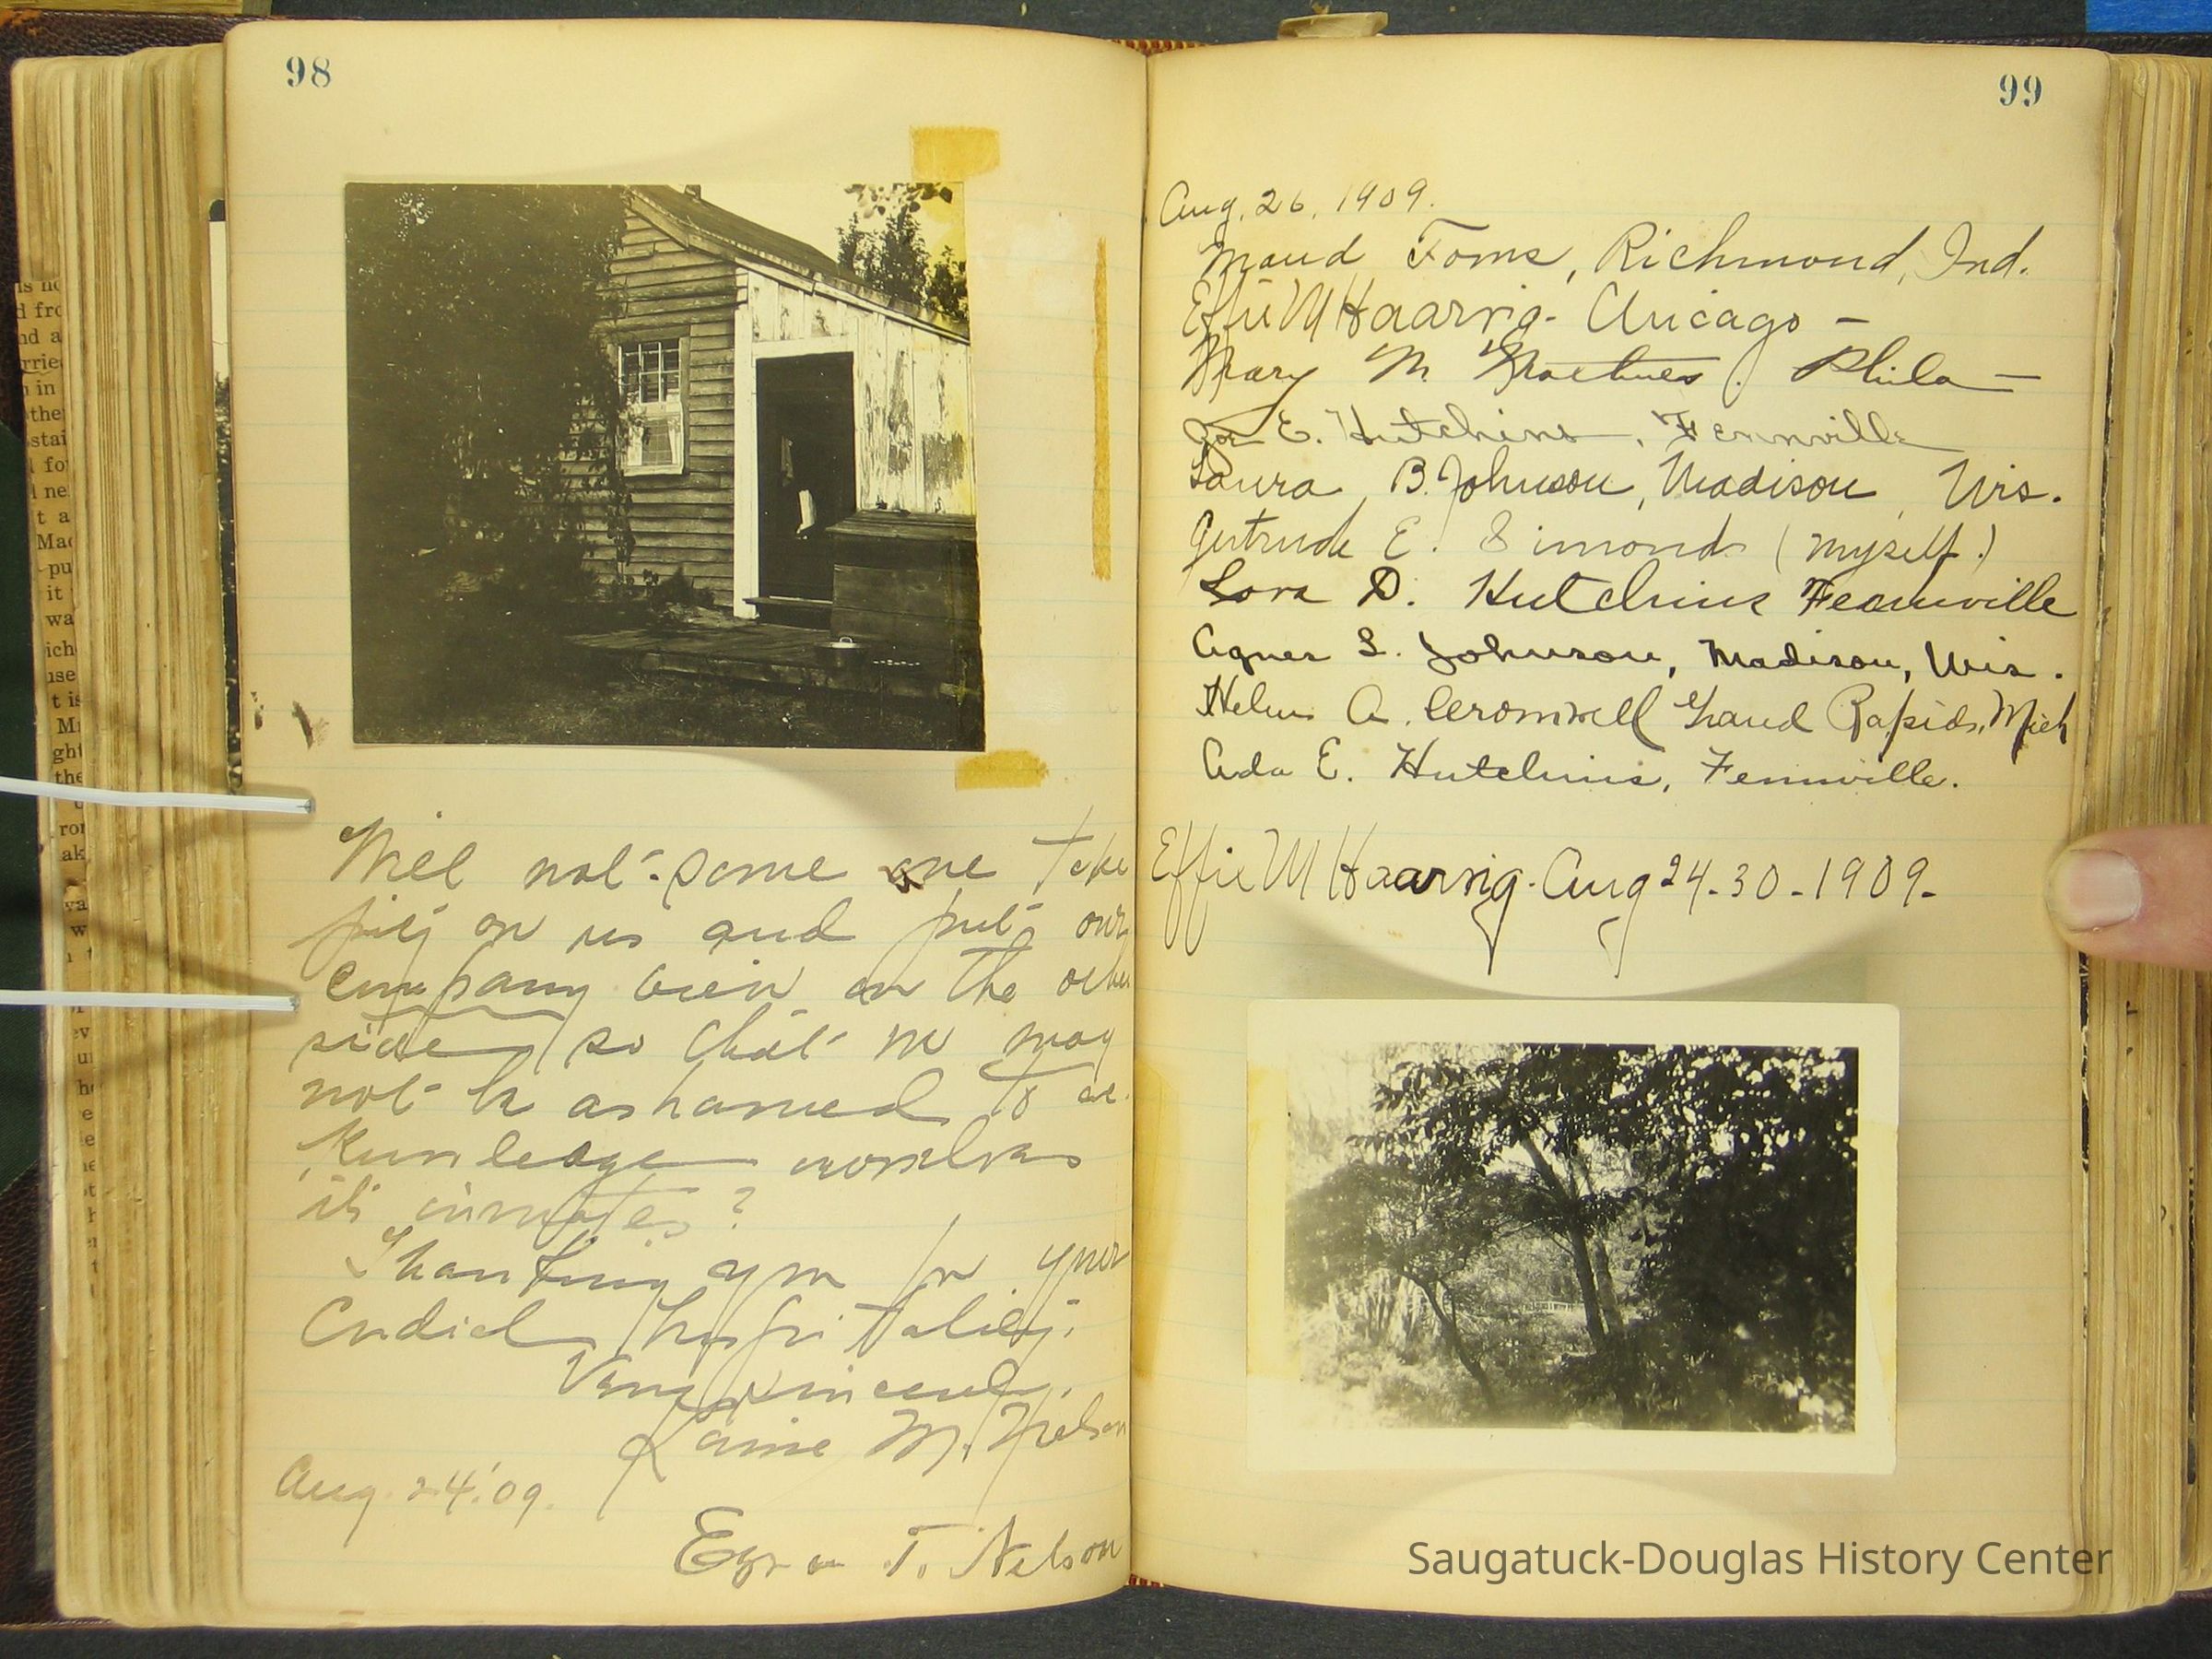 98
Will not some one take
pity on us and put our
company view on the other
side so that we may
not be ashamed to ac
knowledge ourselves
its inmates?
Thanking you for your
Cordial hospitality.
Very sincerely,
M. Nelson
Aug. 24. '09.
Ezra T. Nelson
99
Aug. 26, 1909.
Maud Toms, Richmond, Ind.
Effie M Haarvig - Chicago -
Mary M. Phila -
E. Hutchins, Fennville
Laura B. Johnson, Madison, Wis.
Gertrude E. Simonds (myself)
Lora D. Hutchins Fennville
Agnes L. Johnson, Madison, Wis.
Helen A. Cromwell Grand Rapids, Mich
Ada E. Hutchins, Fennville.
Effie M Haarvig - Aug 24-30-1909-
Saugatuck-Douglas History Center